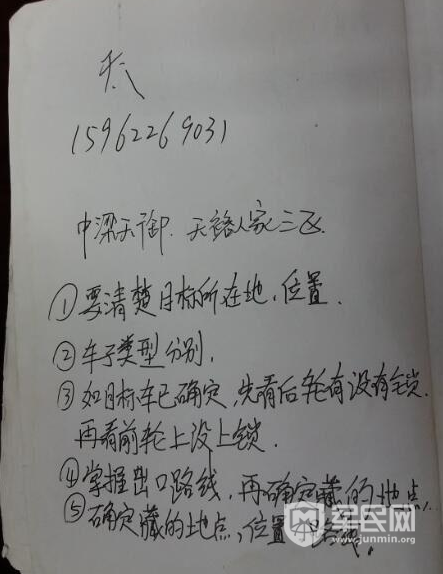 15962269031
中梁天御. 天籁人家三区.
①要清楚目标所在地,位置.
②车子类型分别.
③如目标车已确定,先看后轮有没有锁.
再看前轮上没上锁.
④掌握出口路线,再确定藏的地点.
⑤确定藏的地点,位置和路线.
军民网
www.junmin.org